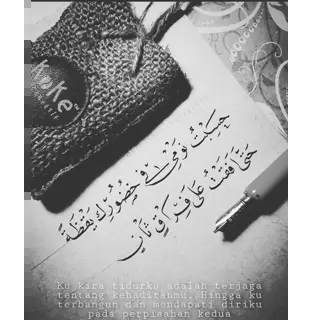 حَسِبْتُ نَوْمِي فِي حُضُورِكَ يَقْظَةً
حَتَّى أَفَقْتُ عَلَى فِرَاقٍ ثَانِ
Ku kira tidurku adalah terjaga
tentang kehadiranmu. Hingga ku
terbangun dan mendapati diriku
pada perpisahan kedua